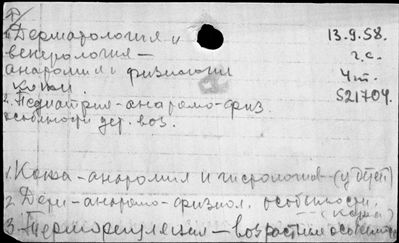 1. Дерматология и
13.9.58.
венерология -
г.с.
анатомия и физиология
4 т.
кожи.
S21704.
2. Педиатрия - анатомо-физ.
особенности дет. воз.
1. Кожа - анатомия и гистология (у детей)
2. Дети - анатомо-физиол. особенности.
(кожа)
3. Терморегуляция - возрастные особенности